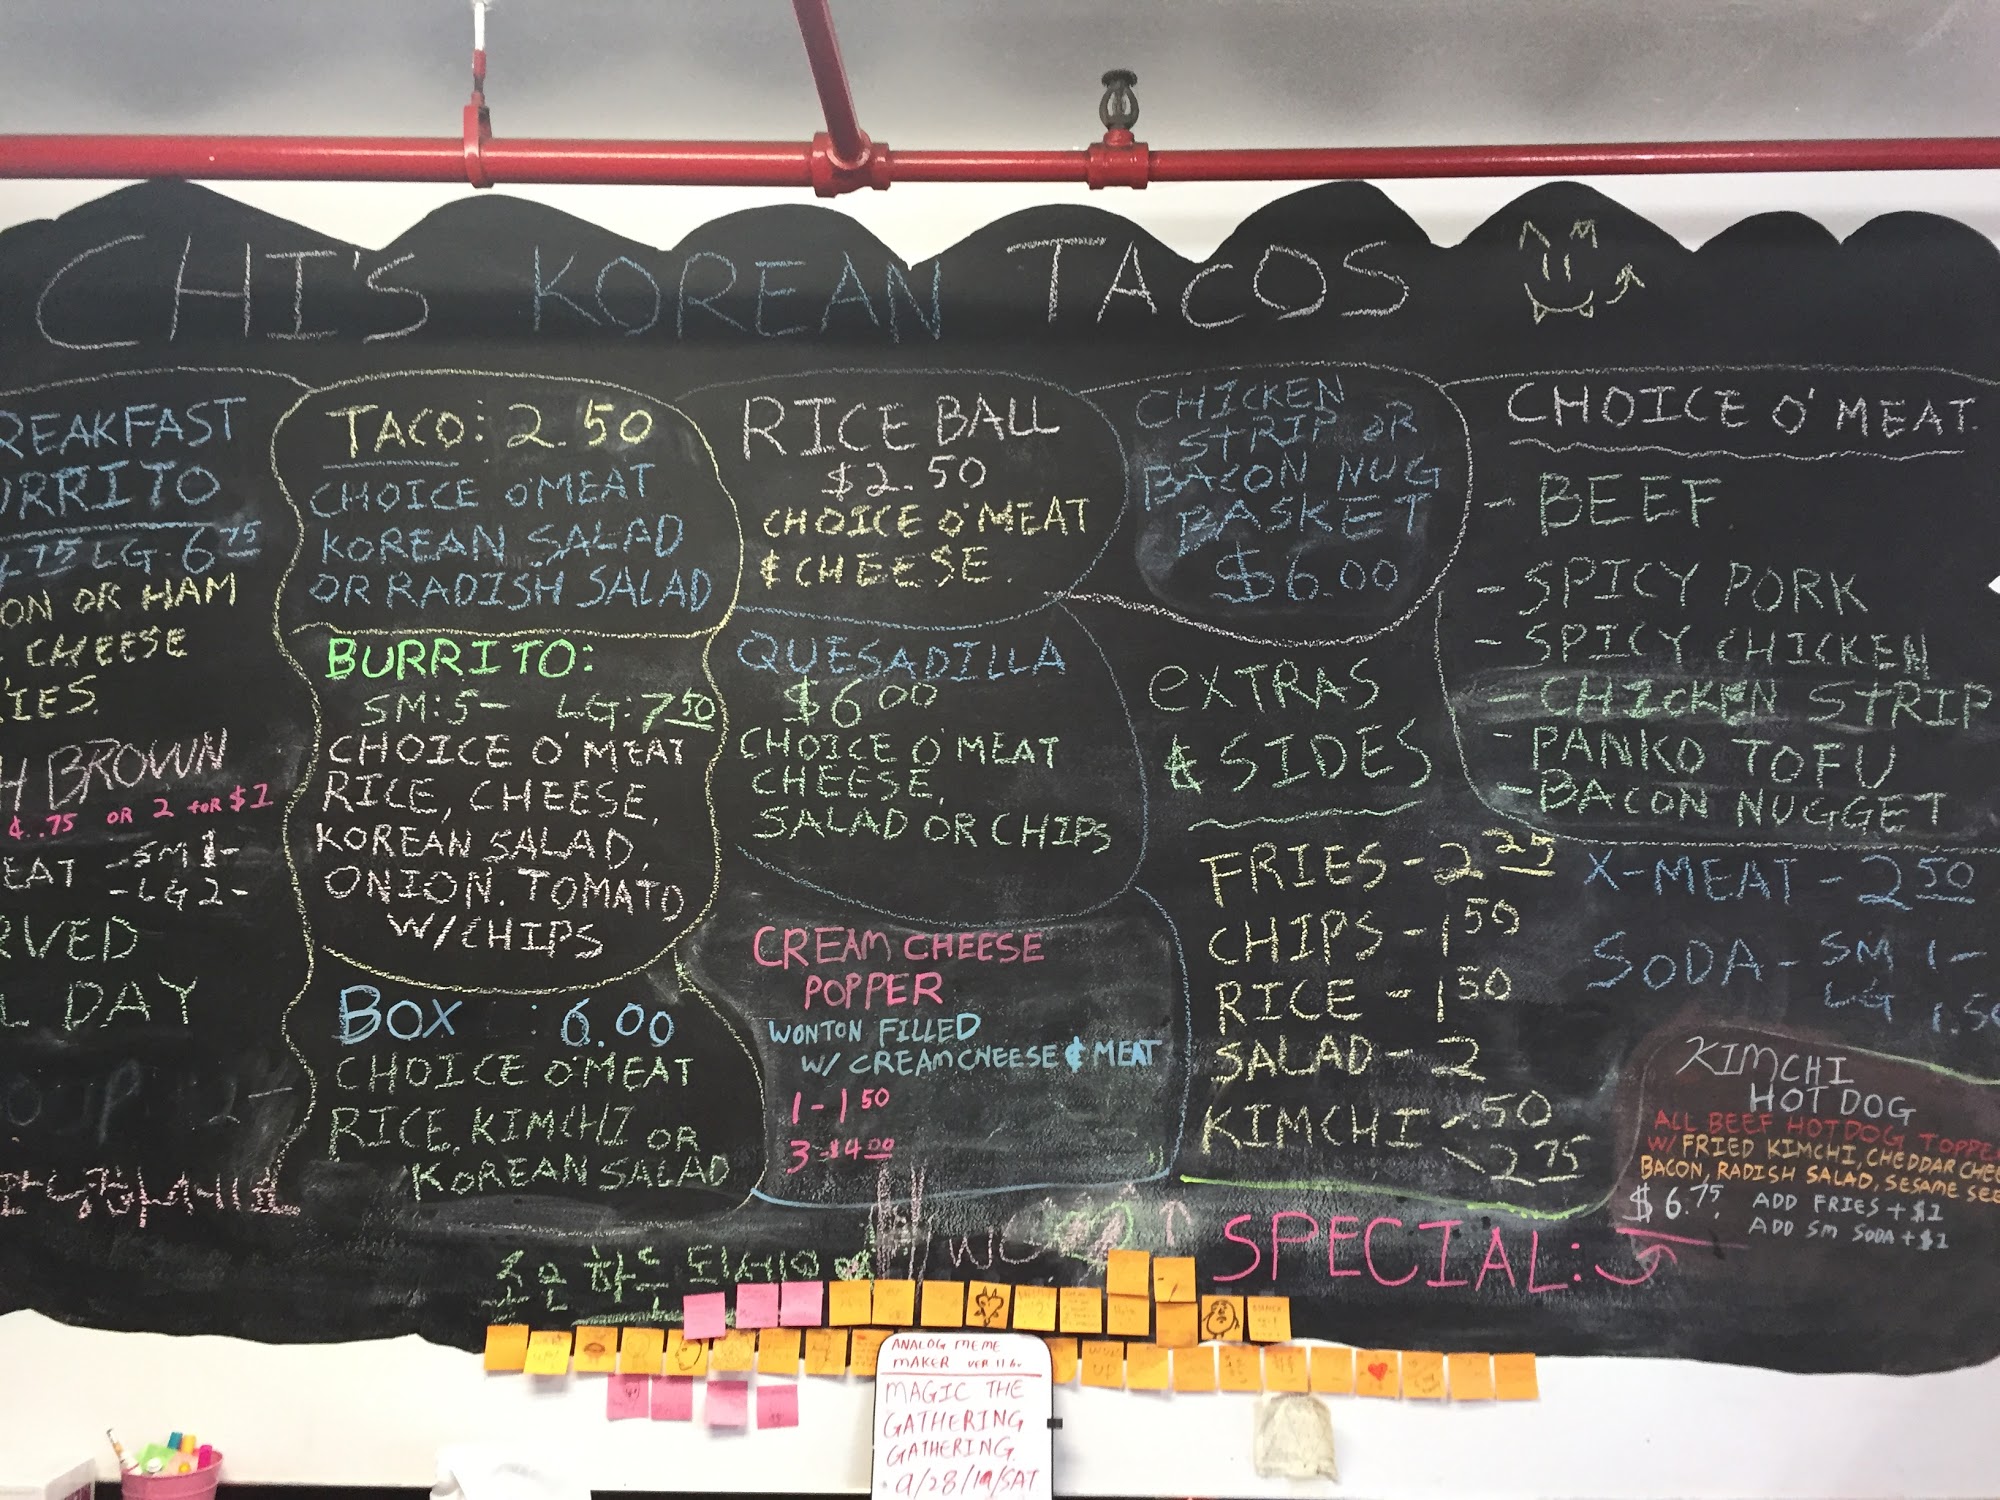 CHI'S KOREAN TACOS
REAKFAST
URRITO
.75 LG 6.75
ON OR HAM
CHEESE
IES.
H BROWN
.75 OR 2 FOR $1
EAT -SM 1-
-LG 2-
RVED
L DAY
TACO: 2.50
CHOICE O'MEAT
KOREAN SALAD
OR RADISH SALAD
BURRITO:
SM:5- LG:7.50
CHOICE O'MEAT
RICE, CHEESE,
KOREAN SALAD,
ONION. TOMATO
W/CHIPS
BOX : 6.00
CHOICE O'MEAT
RICE, KIMCHI OR
KOREAN SALAD
RICE BALL
$2.50
CHOICE O'MEAT
& CHEESE.
QUESADILLA
$6.00
CHOICE O'MEAT
CHEESE,
SALAD OR CHIPS
CREAM CHEESE
POPPER
WONTON FILLED
W/ CREAMCHEESE & MEAT
1-1.50
3-$4.00
CHICKEN
STRIP OR
BACON NUG
BASKET
$6.00
EXTRAS
& SIDES
FRIES - 2.25
CHIPS - 1.50
RICE - 1.50
SALAD - 2
KIMCHI - .50
- 2.75
CHOICE O'MEAT.
- BEEF.
- SPICY PORK
- SPICY CHICKEN
- CHICKEN STRIP
- PANKO TOFU
- BACON NUGGET
X-MEAT - 2.50
SODA - SM 1-
LG 1.50
KIMCHI
HOT DOG
ALL BEEF HOTDOG TOPPE
W/ FRIED KIMCHI, CHEDDAR CHEE
BACON, RADISH SALAD, SESAME SEE
$6.75 ADD FRIES + $1
ADD SM SODA + $1
SPECIAL:
하루 되세요
ANALOG MEME
MAKER VER 11.6
MAGIC THE
GATHERING
GATHERING
9/28/19/SAT